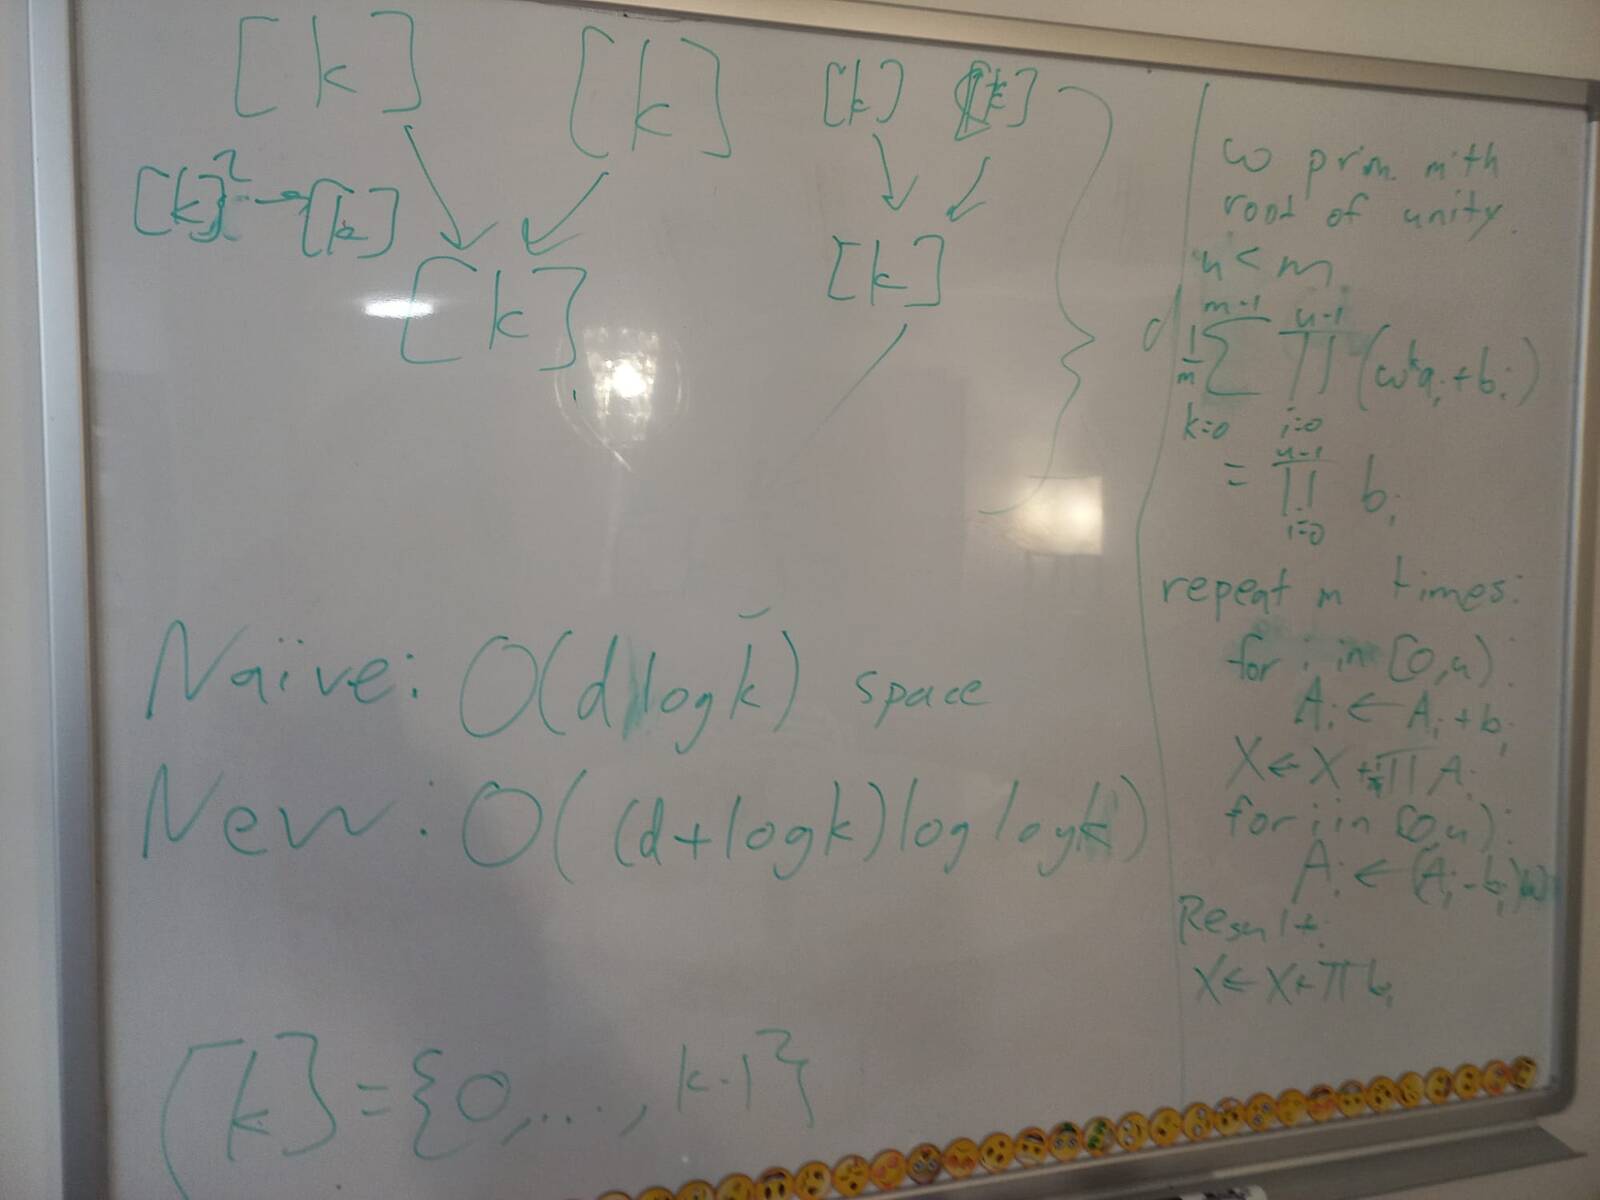 [k] [k] [k] [k]
[k]² → [k]
[k] [k]
d
Naïve: O(d log k) space
New: O((d+log k) log log k)
[k] = {0, ..., k-1}
ω prim. mth
root of unity.
n < m
1/m ∑_{k=0}^{m-1} ∏_{i=0}^{n-1} (ω^k a_i + b_i)
= ∏_{i=0}^{n-1} b_i
repeat m times:
for i in [0,n):
A_i ← A_i + b_i
X ← X + 1/m ∏ A_i
for i in [0,n):
A_i ← (A_i - b_i)ω
Result:
X ← X + ∏ b_i